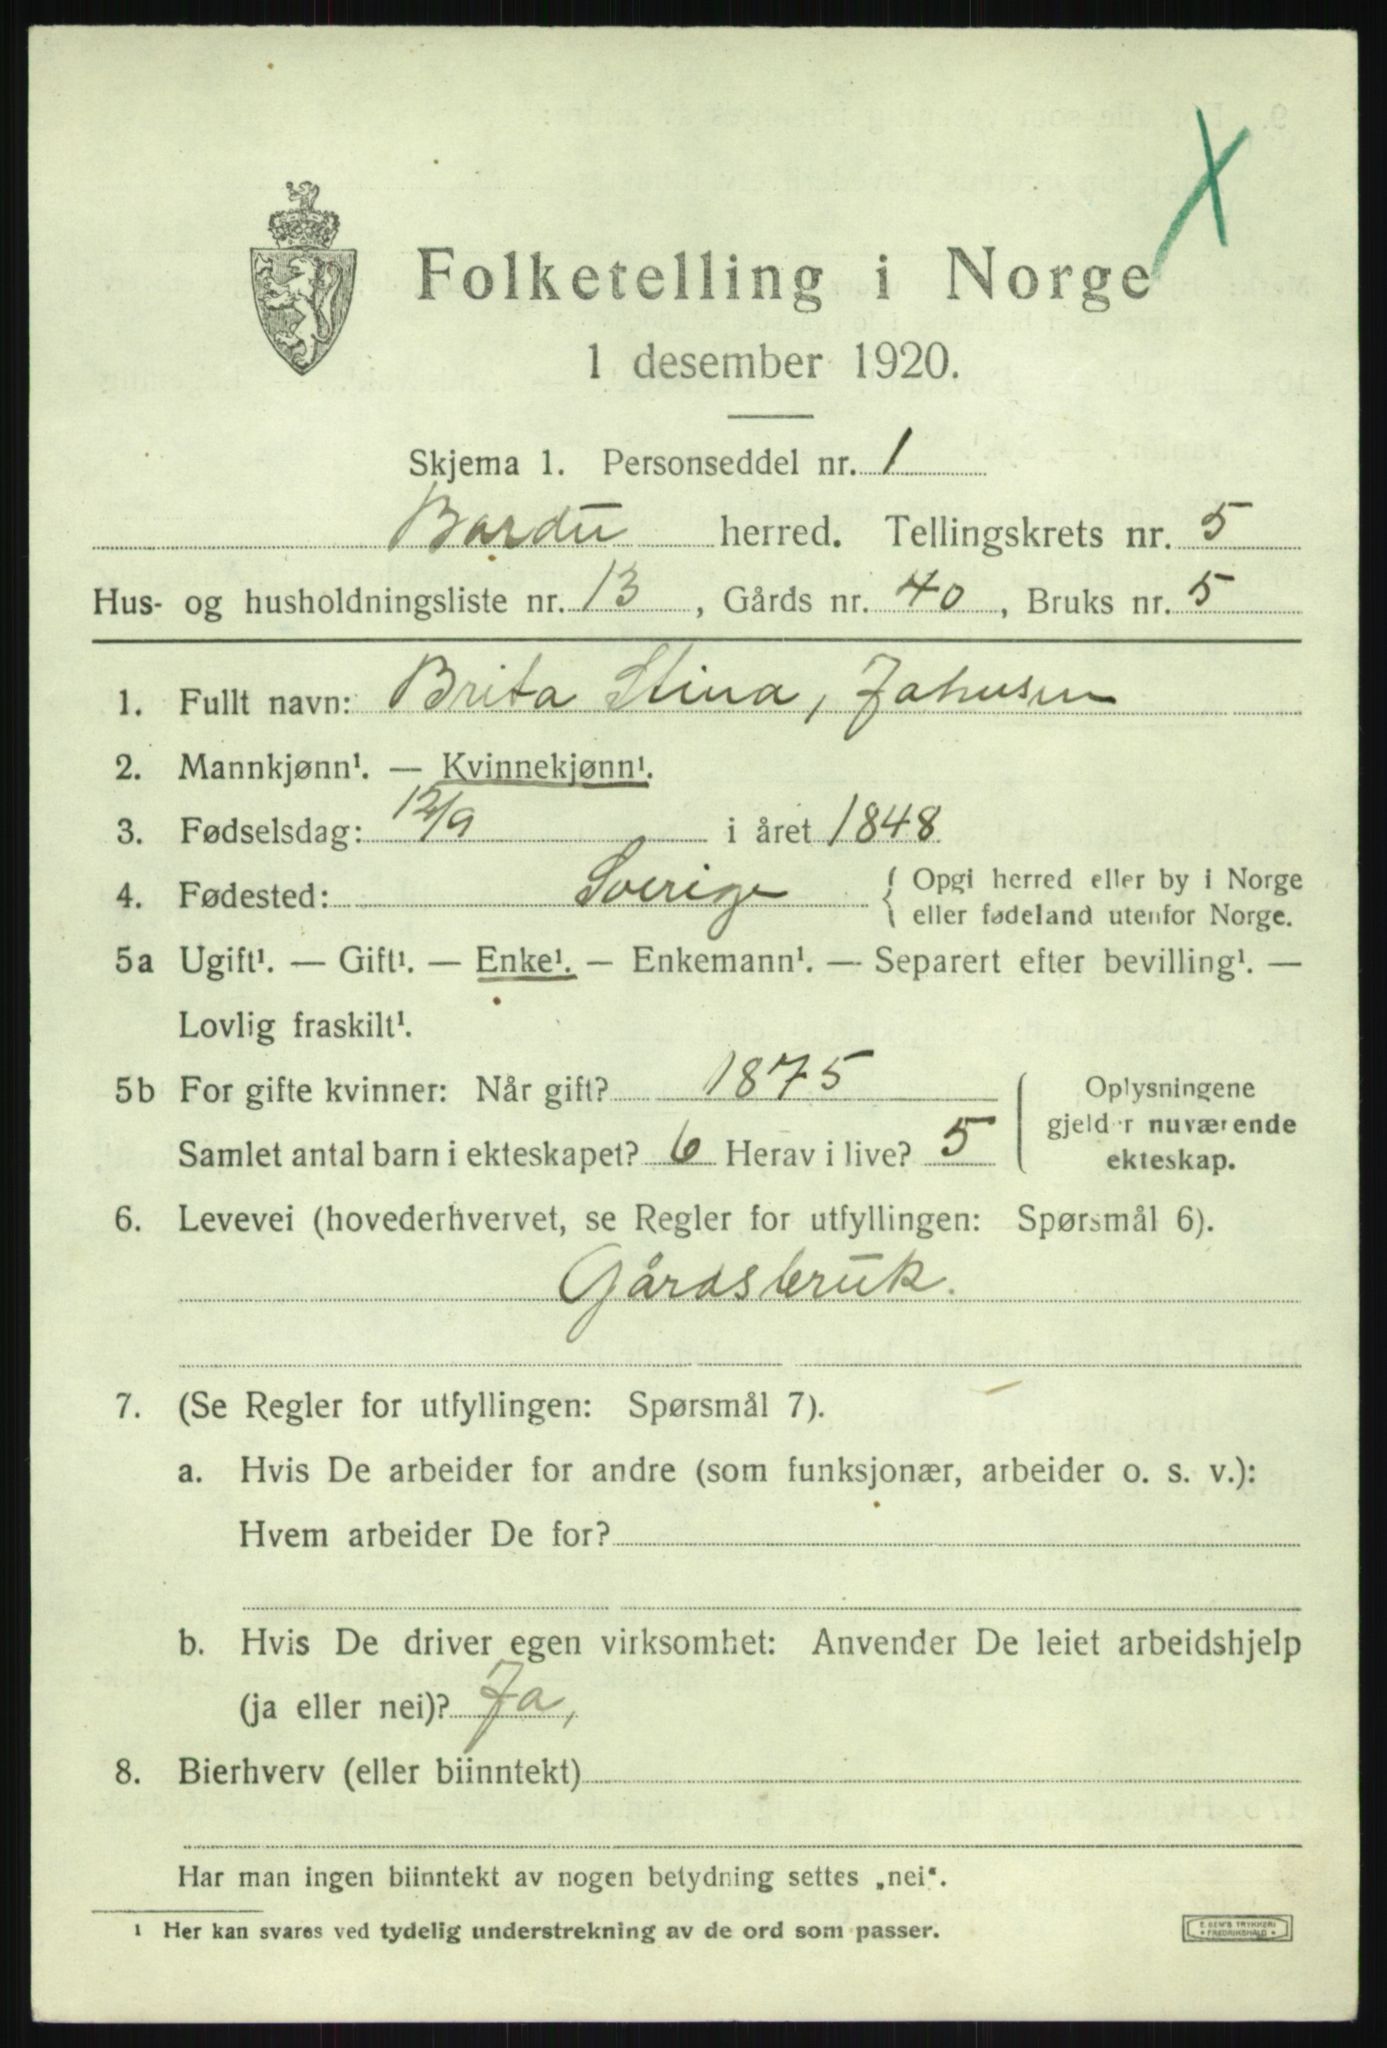 Folketelling i Norge
1 desember 1920.
Skjema 1. Personseddel nr. 1
Bardu herred. Tellingskrets nr. 5
Hus- og husholdningsliste nr. 13, Gårds nr. 40, Bruks nr. 5
1. Fullt navn: Brita Stina, Johnsen
2. Mannkjønn¹. — Kvinnekjønn¹.
3. Fødselsdag: 12/9 i året 1848
4. Fødested: Sverige { Opgi herred eller by i Norge
eller fødeland utenfor Norge.
5a Ugift¹. — Gift¹. — Enke¹. — Enkemann¹. — Separert efter bevilling¹. —
Lovlig fraskilt¹.
5b For gifte kvinner: Når gift? 1875
Samlet antal barn i ekteskapet? 6 Herav i live? 5
Oplysningene
gjelder nuværende
ekteskap.
6. Levevei (hovederhvervet, se Regler for utfyllingen: Spørsmål 6).
Gårdsbruk.
7. (Se Regler for utfyllingen: Spørsmål 7).
a. Hvis De arbeider for andre (som funksjonær, arbeider o. s. v.):
Hvem arbeider De for?
b. Hvis De driver egen virksomhet: Anvender De leiet arbeidshjelp
(ja eller nei)? Ja,
8. Bierhverv (eller biinntekt)
Har man ingen biinntekt av nogen betydning settes „nei“.
¹ Her kan svares ved tydelig understrekning av de ord som passer.
E. SEM'S TRYKKERI
FREDRIKSHALD